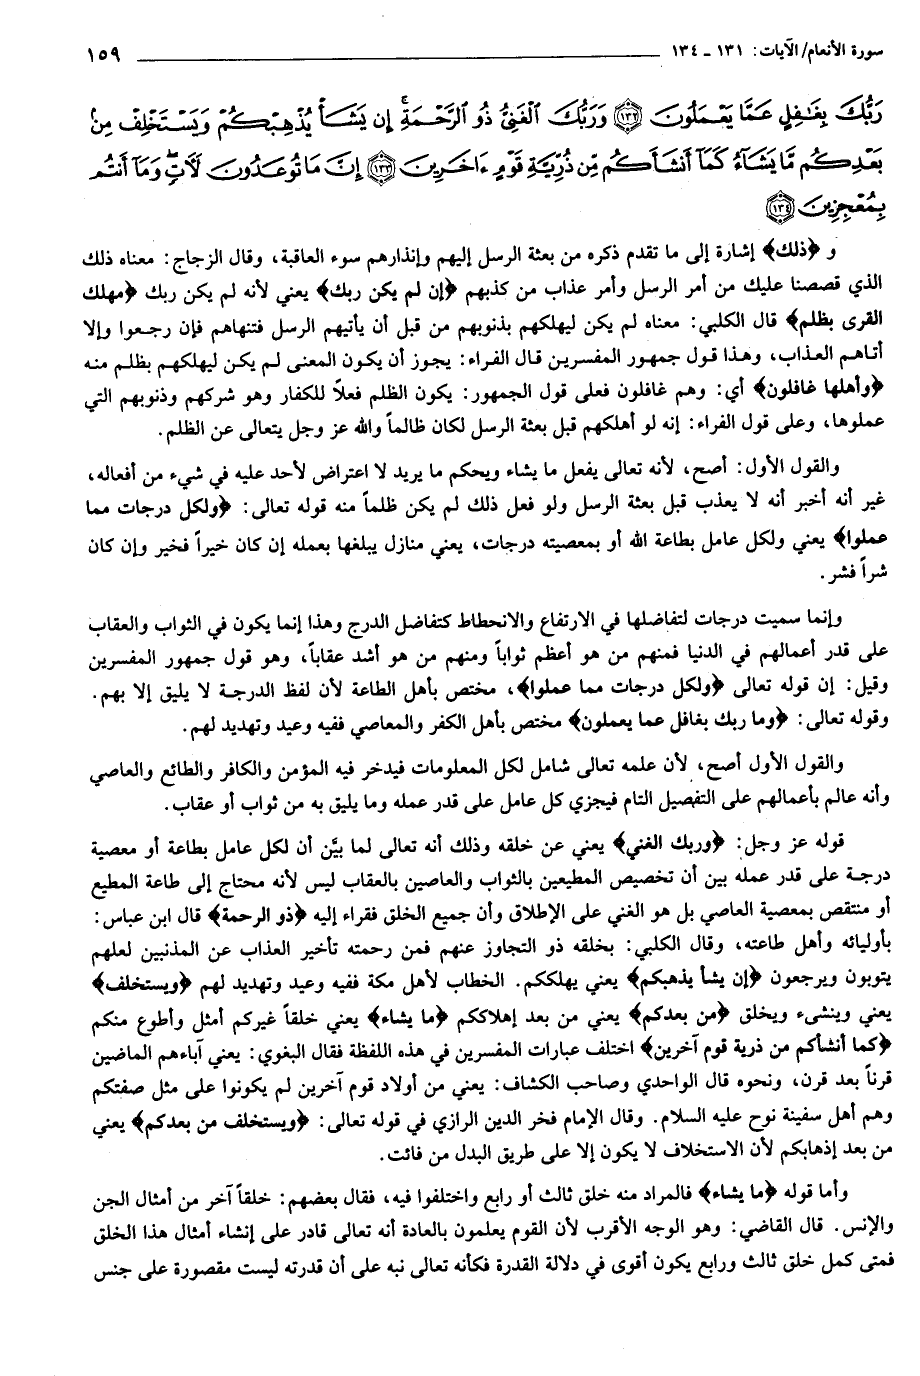 سورة الأنعام/ الآيات: ١٣١ - ١٣٤ ١٥٩
رَبُّكَ بِغَٰفِلٍ عَمَّا يَعْمَلُونَ ﴿١٣٢﴾ وَرَبُّكَ ٱلْغَنِىُّ ذُو ٱلرَّحْمَةِ ۚ إِن يَشَأْ يُذْهِبْكُمْ وَيَسْتَخْلِفْ مِنۢ
بَعْدِكُم مَّا يَشَآءُ كَمَآ أَنشَأَكُم مِّن ذُرِّيَّةِ قَوْمٍ ءَاخَرِينَ ﴿١٣٣﴾ إِنَّ مَا تُوعَدُونَ لَءَاتٍ ۖ وَمَآ أَنتُم
بِمُعْجِزِينَ ﴿١٣٤﴾
و ﴿ذلك﴾ إشارة إلى ما تقدم ذكره من بعثة الرسل إليهم وإنذارهم سوء العاقبة، وقال الزجاج: معناه ذلك
الذي قصصنا عليك من أمر الرسل وأمر عذاب من كذبهم ﴿إن لم يكن ربك﴾ يعني لأنه لم يكن ربك ﴿مهلك
القرى بظلم﴾ قال الكلبي: معناه لم يكن ليهلكهم بذنوبهم من قبل أن يأتيهم الرسل فتنهاهم فإن رجعوا وإلا
أتاهم العذاب، وهذا قول جمهور المفسرين قال الفراء: يجوز أن يكون المعنى لم يكن ليهلكهم بظلم منه
﴿وأهلها غافلون﴾ أي: وهم غافلون فعلى قول الجمهور: يكون الظلم فعلاً للكفار وهو شركهم وذنوبهم التي
عملوها، وعلى قول الفراء: إنه لو أهلكهم قبل بعثة الرسل لكان ظالماً والله عز وجل يتعالى عن الظلم.
والقول الأول: أصح، لأنه تعالى يفعل ما يشاء ويحكم ما يريد لا اعتراض لأحد عليه في شيء من أفعاله،
غير أنه أخبر أنه لا يعذب قبل بعثة الرسل ولو فعل ذلك لم يكن ظلماً منه قوله تعالى: ﴿ولكل درجات مما
عملوا﴾ يعني ولكل عامل بطاعة الله أو بمعصيته درجات، يعني منازل يبلغها بعمله إن كان خيراً فخير وإن كان
شراً فشر.
وإنما سميت درجات لتفاضلها في الارتفاع والانحطاط كتفاضل الدرج وهذا إنما يكون في الثواب والعقاب
على قدر أعمالهم في الدنيا فمنهم من هو أعظم ثواباً ومنهم من هو أشد عقاباً، وهو قول جمهور المفسرين
وقيل: إن قوله تعالى ﴿ولكل درجات مما عملوا﴾، مختص بأهل الطاعة لأن لفظ الدرجة لا يليق إلا بهم.
وقوله تعالى: ﴿وما ربك بغافل عما يعملون﴾ مختص بأهل الكفر والمعاصي ففيه وعيد وتهديد لهم.
والقول الأول أصح، لأن علمه تعالى شامل لكل المعلومات فيدخر فيه المؤمن والكافر والطائع والعاصي
وأنه عالم بأعمالهم على التفصيل التام فيجزي كل عامل على قدر عمله وما يليق به من ثواب أو عقاب.
قوله عز وجل: ﴿وربك الغني﴾ يعني عن خلقه وذلك أنه تعالى لما بيَّن أن لكل عامل بطاعة أو معصية
درجة على قدر عمله بين أن تخصيص المطيعين بالثواب والعاصين بالعقاب ليس لأنه محتاج إلى طاعة المطيع
أو منتقص بمعصية العاصي بل هو الغني على الإطلاق وأن جميع الخلق فقراء إليه ﴿ذو الرحمة﴾ قال ابن عباس:
بأوليائه وأهل طاعته، وقال الكلبي: بخلقه ذو التجاوز عنهم فمن رحمته تأخير العذاب عن المذنبين لعلهم
يتوبون ويرجعون ﴿إن يشأ يذهبكم﴾ يعني يهلككم. الخطاب لأهل مكة ففيه وعيد وتهديد لهم ﴿ويستخلف﴾
يعني وينشىء ويخلق ﴿من بعدكم﴾ يعني من بعد إهلاككم ﴿ما يشاء﴾ يعني خلقاً غيركم أمثل وأطوع منكم
﴿كما أنشأكم من ذرية قوم آخرين﴾ اختلف عبارات المفسرين في هذه اللفظة فقال البغوي: يعني آباءهم الماضين
قرناً بعد قرن، ونحوه قال الواحدي وصاحب الكشاف: يعني من أولاد قوم آخرين لم يكونوا على مثل صفتكم
وهم أهل سفينة نوح عليه السلام. وقال الإمام فخر الدين الرازي في قوله تعالى: ﴿ويستخلف من بعدكم﴾ يعني
من بعد إذهابكم لأن الاستخلاف لا يكون إلا على طريق البدل من فائت.
وأما قوله ﴿ما يشاء﴾ فالمراد منه خلق ثالث أو رابع واختلفوا فيه، فقال بعضهم: خلقاً آخر من أمثال الجن
والإنس. قال القاضي: وهو الوجه الأقرب لأن القوم يعلمون بالعادة أنه تعالى قادر على إنشاء أمثال هذا الخلق
فمتى كمل خلق ثالث ورابع يكون أقوى في دلالة القدرة فكأنه تعالى نبه على أن قدرته ليست مقصورة على جنس